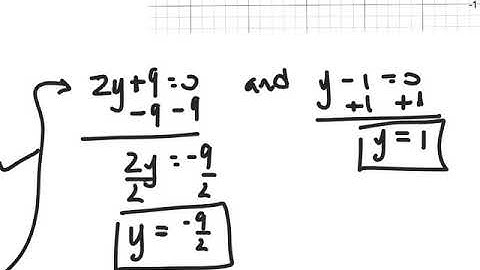 -1
2y+9=0 and y-1=0
-9 -9 +1 +1
2y=-9 y=1
2 2
y=-9/2